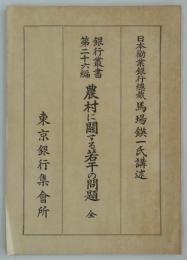 日本勧業銀行總裁 馬場鍈一氏講述
銀行叢書
第二十六編
農村に關する若干の問題 全
東京銀行集會所